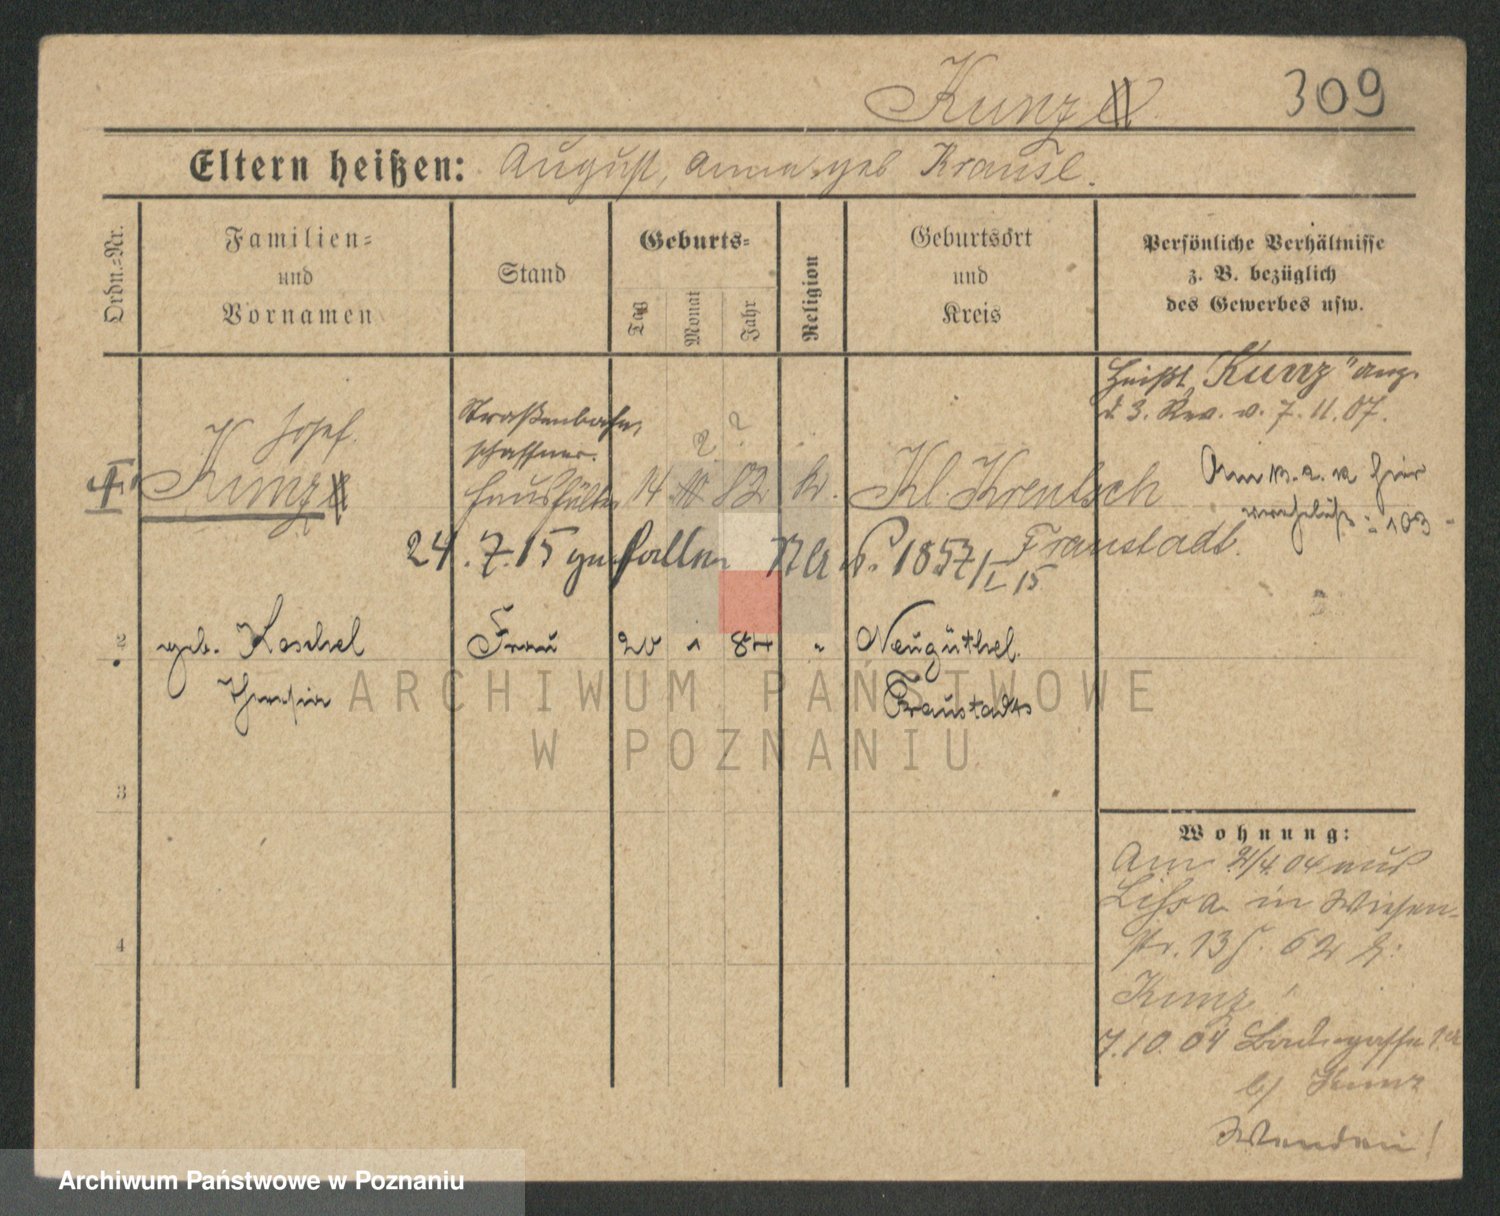 Kunz
309
Eltern heißen: August, Anna geb Krause.
Ordn.-Nr.
Familien-
und
Vornamen
Stand
Geburts-
Tag
Monat
Jahr
Religion
Geburtsort
und
Kreis
Persönliche Verhältnisse
z. B. bezüglich
des Gewerbes usw.
Heißt „Kunz" ang.
d. 3. Rev. v. 7. 11. 07.
Josef
Kunz
Straßenbahn
schaffner.
Haushälter
14
82
k.
Kl. Krentsch
Fraustadt.
Am hier
103
24. 7. 15 gefallen 1857/15
2
geb. Koschel
Frau
20
1
84
"
Neugüthel
Fraustadt
3
Wohnung:
Am 2/4. 04 aus
Lissa in Wiesen-
str. 13 b/
Kunz
4
7. 10. 04
b/ Kunz
Wenden!
ARCHIWUM PAŃSTWOWE
W POZNANIU
Archiwum Państwowe w Poznaniu